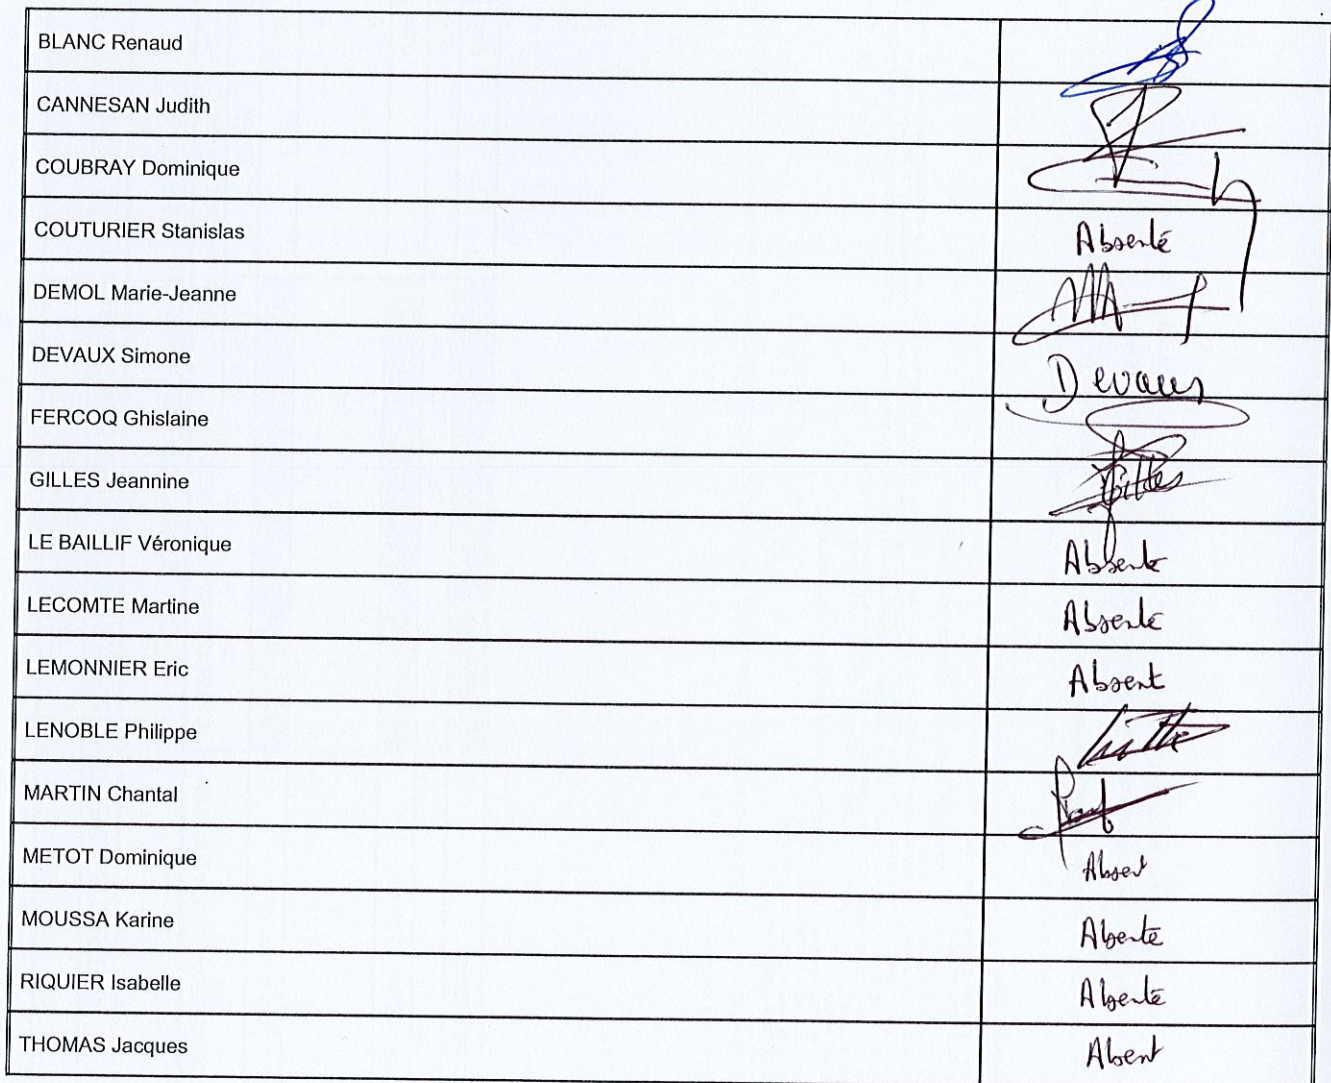 BLANC Renaud
CANNESAN Judith
COUBRAY Dominique
COUTURIER Stanislas Absenté
DEMOL Marie-Jeanne
DEVAUX Simone Devaux
FERCOQ Ghislaine
GILLES Jeannine Gilles
LE BAILLIF Véronique Absente
LECOMTE Martine Absente
LEMONNIER Eric Absent
LENOBLE Philippe
MARTIN Chantal
METOT Dominique Absent
MOUSSA Karine Absente
RIQUIER Isabelle Absente
THOMAS Jacques Absent